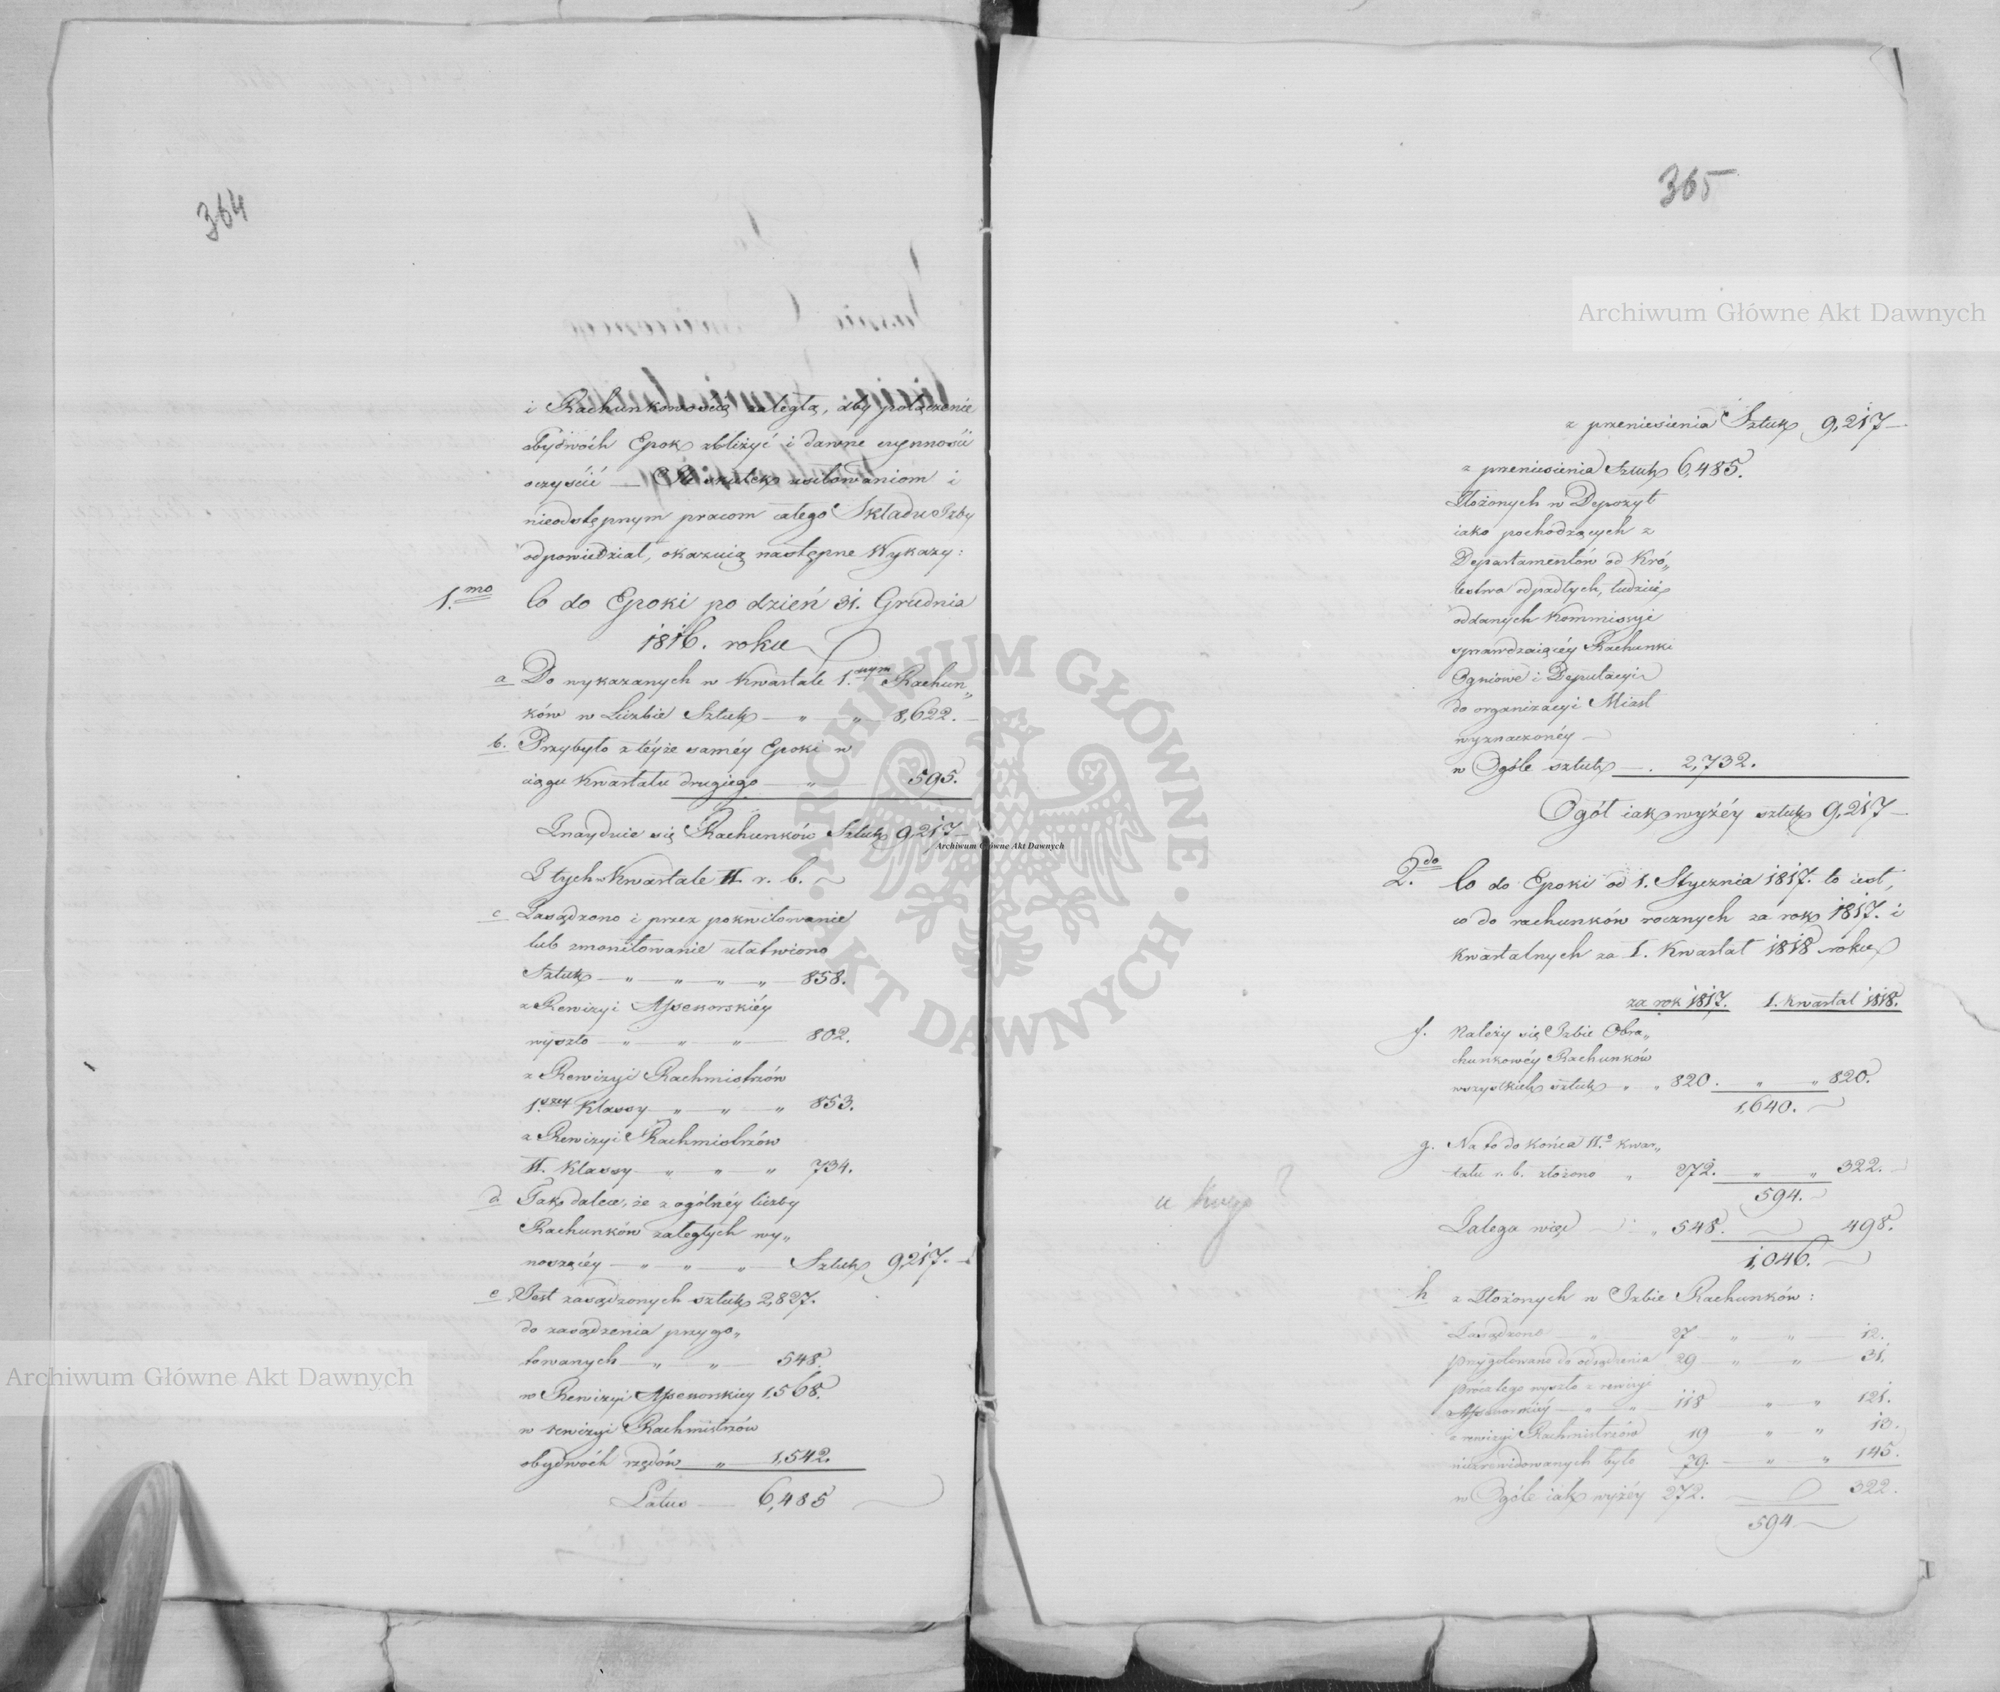 364
i Rachunkowością zaległą, aby połączenie
obydwóch Epok zbliżyć i dawne czynności
oczyścić — Ile skutek usiłowaniom i
nieodstępnym pracom całego Składu Izby
odpowiedział, okazuią następne Wykazy:
1.mo Co do Epoki po dzień 31. Grudnia
1816. roku
a Do wykazanych w Kwartale 1.wszym Rachun„
ków w Liczbie Sztuk — „ „ 8,622.—
b. Przybyło z téyże saméy Epoki w
ciągu Kwartału drugiego — „ — 595.
Znayduie się Rachunków Sztuk 9,217—
Z tych w Kwartale II. r. b. ~
c Zasądzono i przez pokwitowanie
lub zmonitowanie ułatwiono
Sztuk — „ — „ — „ — „ — 858.
z Rewizyi Assesorskiéy
wyszło — „ — „ — „ — 802.
z Rewizyi Rachmistrzów
1.szey Klassy — „ — „ — „ 853.
z Rewizyi Rachmistrzów
II. Klassy — „ — „ — „ 734.
d Tak dalece, że z ogólnéy liczby
Rachunków zaległych wy„
noszącéy — „ — „ — „ — Sztuk 9,217.—
e Jest zasądzonych sztuk 2,827.
do zasądzenia przygo„
towanych — „ — „ — 548.
w Rewizyi Assesorskiey 1,568.
w rewizyi Rachmistrzów
obydwóch rzędów — „ — 1,542.
Latus — 6,485
365
z przeniesienia Sztuk 9,217—
z przeniesienia Sztuk 6,485.
Złożonych w Depozyt
iako pochodzących z
Departamentów od Kró„
lestwa odpadłych, tudzież
oddanych Kommissyi
sprawdzaiącéy Rachunki
Ogniowe i Deputacyi
do organizacyi Miast
wyznaczonéy —
w Ogóle sztuk — . 2,732.
Ogół iak wyżéy sztuk 9,217—
2.do Co do Epoki od 1. Stycznia 1817. to iest,
co do rachunków rocznych za rok 1817. i
kwartalnych za I. Kwartał 1818 roku
za rok 1817. 1. Kwartał 1818.
f. Należy się Izbie Obra„
chunkowéy Rachunków
wszystkich sztuk „ „ 820. „ „ 820.
1,640.
g. Na to do końca II.o kwar„
tału r. b. złożono „ 272. „ „ 322.
594.
Zalega więc — „ 548. — 498.
1,046.
u kogo?
h z Złożonych w Izbie Rachunków:
Zasądzono — „ — 27 — „ — „ — 12.
przygotowano do osądzenia 29 — „ — „ — 31.
prócz tego wyszło z rewizyi
Assesorskiéy — „ — „ — 118 „ „ 121.
z rewizyi Rachmistrzów 19 „ „ 13.
niezrewidowanych było 79. — „ — „ 145.
w Ogóle iak wyżéy 272. 322.
594
Archiwum Główne Akt Dawnych
Archiwum Główne Akt Dawnych
Archiwum Główne Akt Dawnych
ARCHIWUM GŁÓWNE · AKT DAWNYCH ·